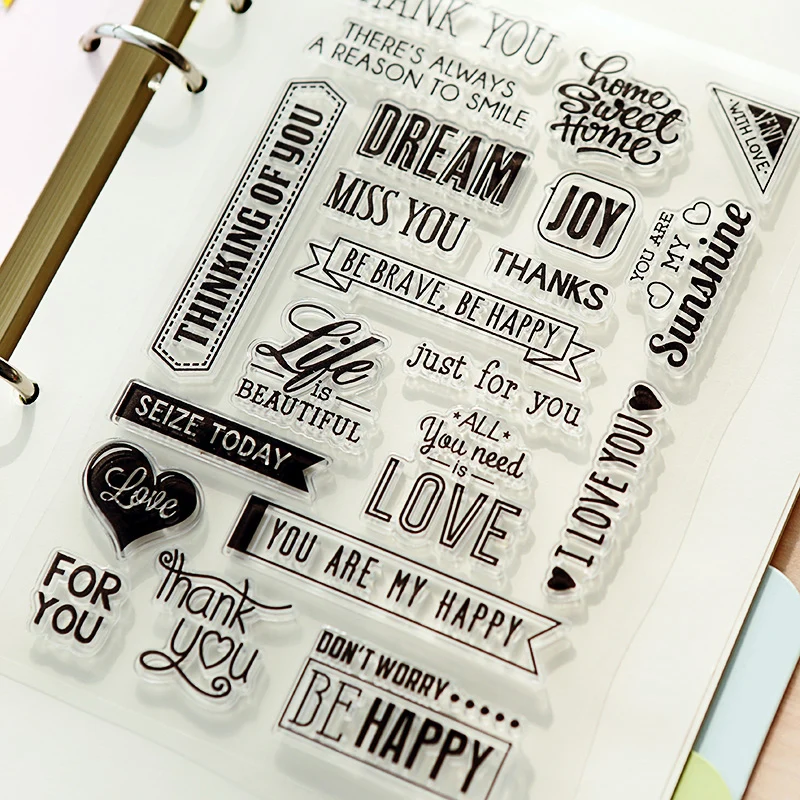 THANK YOU
THERE'S ALWAYS
A REASON TO SMILE
home
Sweet
Home
SENT
WITH LOVE
THINKING OF YOU
DREAM
MISS YOU
JOY
THANKS
YOU ARE
MY
Sunshine
BE BRAVE, BE HAPPY
Life
is
BEAUTIFUL
just for you
SEIZE TODAY
*ALL*
You need
is
LOVE
I LOVE YOU
Love
YOU ARE MY HAPPY
FOR
YOU
thank
you
DON'T WORRY•••••
BE HAPPY